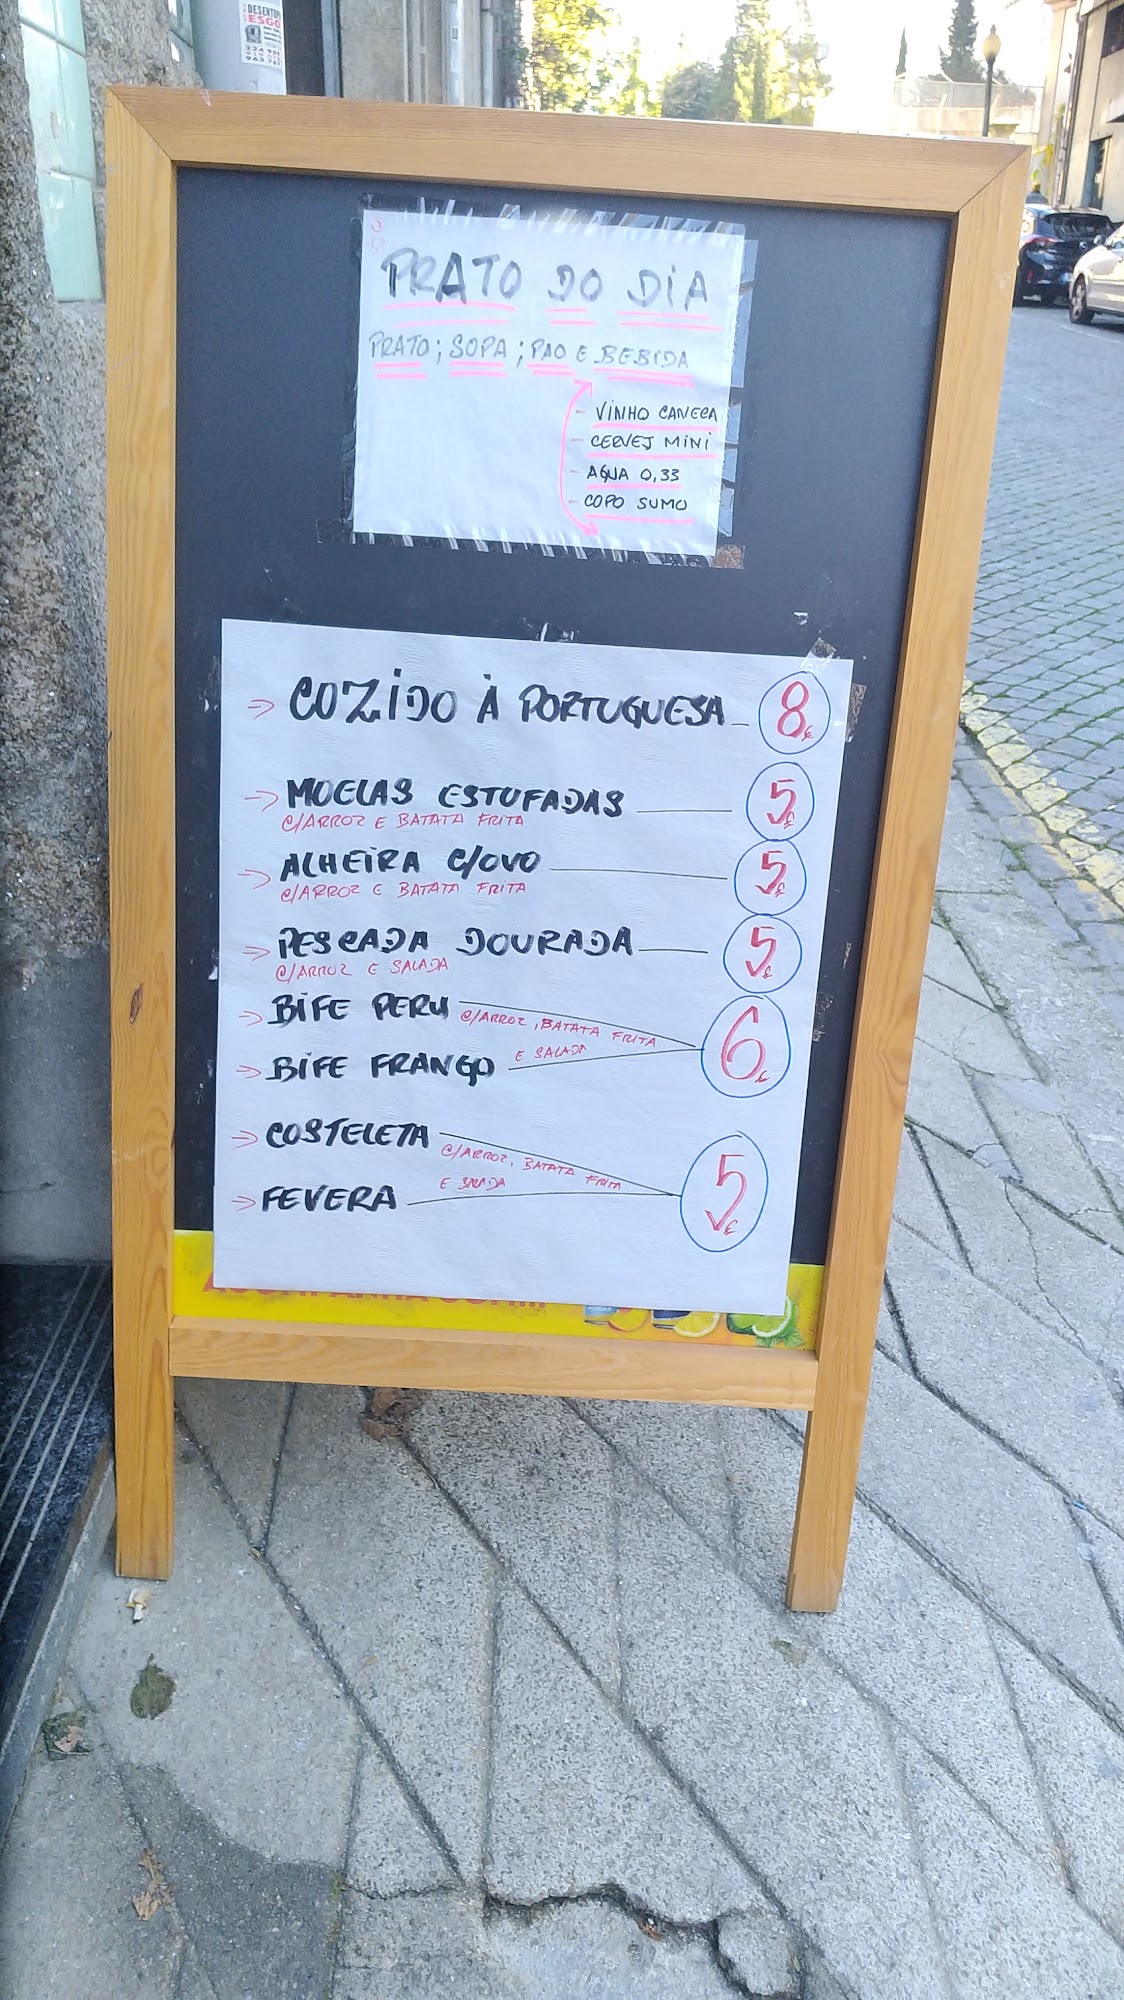 DESENTUPI
ESGO
PRATO DO DIA
PRATO; SOPA; PAO E BEBIDA
- VINHO CANECA
- CERVEJ MINI
- AGUA 0,33
- COPO SUMO
→ COZIDO À PORTUGUESA 8€
→ MOELAS ESTUFADAS 5€
C/ARROZ E BATATA FRITA
→ ALHEIRA C/OVO 5€
C/ARROZ E BATATA FRITA
→ PESCADA DOURADA 5€
C/ARROZ E SALADA
→ BIFE PERU C/ARROZ, BATATA FRITA 6€
→ BIFE FRANGO E SALADA
→ COSTELETA C/ARROZ, BATATA FRITA 5€
→ FEVERA E SALADA